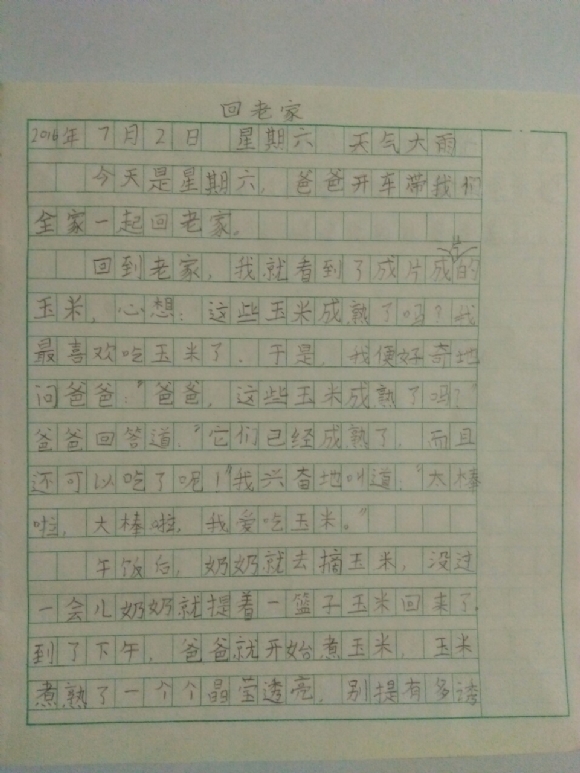 回老家
2016年7月2日 星期六 天气大雨
今天是星期六,爸爸开车带我们
全家一起回老家。
回到老家,我就看到了成片成片的
玉米,心想:这些玉米成熟了吗?我
最喜欢吃玉米了.于是,我便好奇地
问爸爸:“爸爸,这些玉米成熟了吗?”
爸爸回答道:“它们已经成熟了.而且
还可以吃了呢!”我兴奋地叫道:“太棒
啦,太棒啦,我爱吃玉米。”
午饭后,奶奶就去摘玉米,没过
一会儿奶奶就提着一篮子玉米回来了.
到了下午,爸爸就开始煮玉米,玉米
煮熟了一个个晶莹透亮,别提有多诱